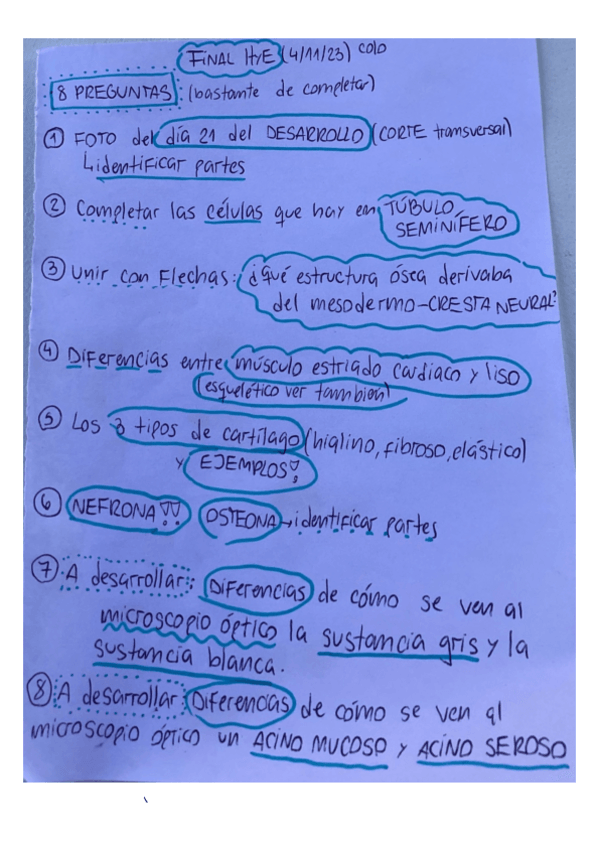 FINAL HyE (4/11/23) colo
8 PREGUNTAS: (bastante de completar)
① FOTO del día 21 del DESARROLLO (CORTE transversal)
identificar partes
② Completar las células que hay en TÚBULO
SEMINÍFERO
③ Unir con Flechas: ¿Qué estructura ósea derivaba
del mesodermo-CRESTA NEURAL?
④ DiFerencias entre músculo estriado cardiaco y liso
(esquelético ver también)
⑤ Los 3 tipos de cartílago (hialino, fibroso, elástico)
y EJEMPLOS!
⑥ NEFRONA!! OSTEONA → identificar partes
⑦ A desarrollar: DiFerencias de cómo se ven al
microscopio óptico la sustancia gris y la
sustancia blanca.
⑧ A desarrollar: DiFerencias de cómo se ven al
microscopio óptico un ACINO MUCOSO y ACINO SEROSO